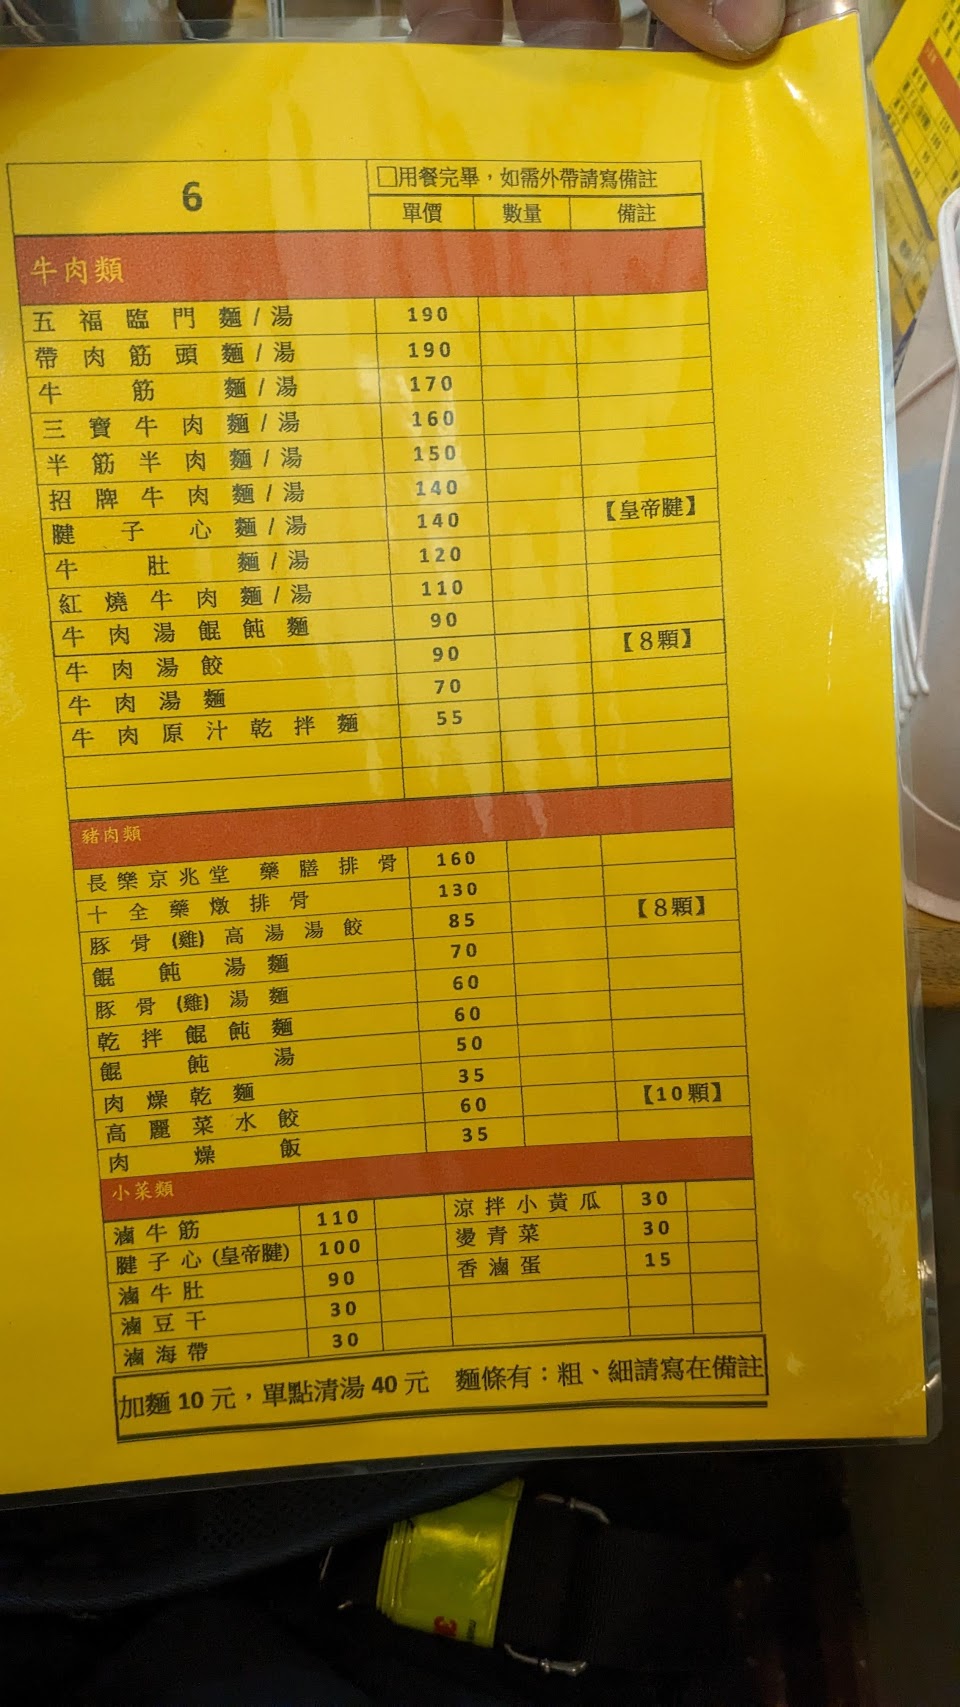 6
□用餐完畢，如需外帶請寫備註
單價 數量 備註
牛肉類
五福臨門麵/湯 190
帶肉筋頭麵/湯 190
牛筋麵/湯 170
三寶牛肉麵/湯 160
半筋半肉麵/湯 150
招牌牛肉麵/湯 140
腱子心麵/湯 140 【皇帝腱】
牛肚麵/湯 120
紅燒牛肉麵/湯 110
牛肉湯餛飩麵 90
牛肉湯餃 90 【8顆】
牛肉湯麵 70
牛肉原汁乾拌麵 55
豬肉類
長樂京兆堂 藥膳排骨 160
十全藥燉排骨 130
豚骨(雞)高湯湯餃 85 【8顆】
餛飩湯麵 70
豚骨(雞)湯麵 60
乾拌餛飩麵 60
餛飩湯 50
肉燥乾麵 35
高麗菜水餃 60 【10顆】
肉燥飯 35
小菜類
滷牛筋 110 涼拌小黃瓜 30
腱子心(皇帝腱) 100 燙青菜 30
滷牛肚 90 香滷蛋 15
滷豆干 30
滷海帶 30
加麵10元，單點清湯40元 麵條有：粗、細請寫在備註